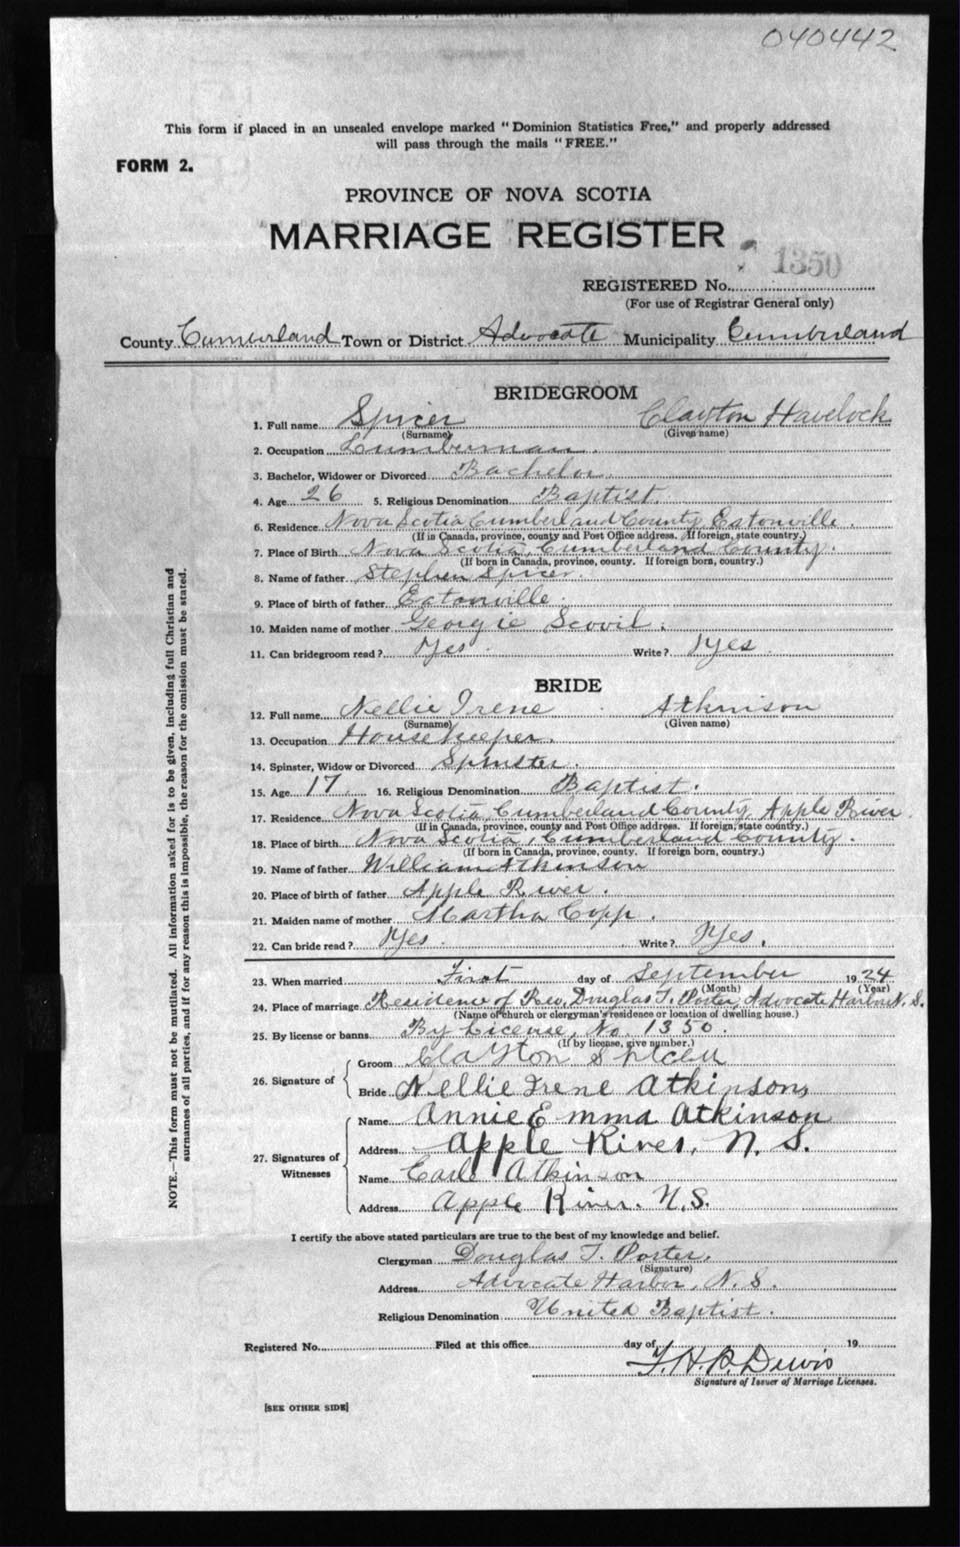 040442
This form if placed in an unsealed envelope marked "Dominion Statistics Free," and properly addressed
will pass through the mails "FREE."
FORM 2.
PROVINCE OF NOVA SCOTIA
MARRIAGE REGISTER
1350
REGISTERED No.
(For use of Registrar General only)
County Cumberland Town or District Advocate Municipality Cumberland
BRIDEGROOM
1. Full name Spicer Clayton Havelock
(Surname) (Given name)
2. Occupation Lumberman.
3. Bachelor, Widower or Divorced Bachelor.
4. Age 26 5. Religious Denomination Baptist.
6. Residence Nova Scotia Cumberland County, Eatonville.
(If in Canada, province, county and Post Office address. If foreign, state country.)
7. Place of Birth Nova Scotia, Cumberland County.
(If born in Canada, province, county. If foreign born, country.)
8. Name of father Stephen Spicer.
9. Place of birth of father Eatonville.
10. Maiden name of mother Georgie Scovil.
11. Can bridegroom read? Yes. Write? Yes.
BRIDE
12. Full name Nellie Irene Atkinson
(Surname) (Given name)
13. Occupation Housekeeper.
14. Spinster, Widow or Divorced Spinster.
15. Age 17 16. Religious Denomination Baptist.
17. Residence Nova Scotia, Cumberland County, Apple River.
(If in Canada, province, county and Post Office address. If foreign, state country.)
18. Place of birth Nova Scotia, Cumberland County.
(If born in Canada, province, county. If foreign born, country.)
19. Name of father William Atkinson
20. Place of birth of father Apple River.
21. Maiden name of mother Martha Copp.
22. Can bride read? Yes. Write? Yes.
23. When married First day of September 1924
(Month) (Year)
24. Place of marriage Residence of Rev. Douglas T. Porter, Advocate Harbor N. S.
(Name of church or clergyman's residence or location of dwelling house.)
25. By license or banns By License, No. 1350.
(If by license, give number.)
26. Signature of Groom Clayton Spicer
Bride Nellie Irene Atkinson
27. Signatures of Witnesses Name Annie Emma Atkinson
Address Apple River, N. S.
Name Carl Atkinson
Address Apple River. N.S.
I certify the above stated particulars are true to the best of my knowledge and belief.
Clergyman Douglas T. Porter.
(Signature)
Address Advocate Harbor, N. S.
Religious Denomination United Baptist.
Registered No. Filed at this office day of 19
Signature of Issuer of Marriage Licenses.
[SEE OTHER SIDE]
NOTE.—This form must not be mutilated. All information asked for is to be given, including full Christian and
surnames of all parties, and if for any reason this is impossible, the reason for the omission must be stated.